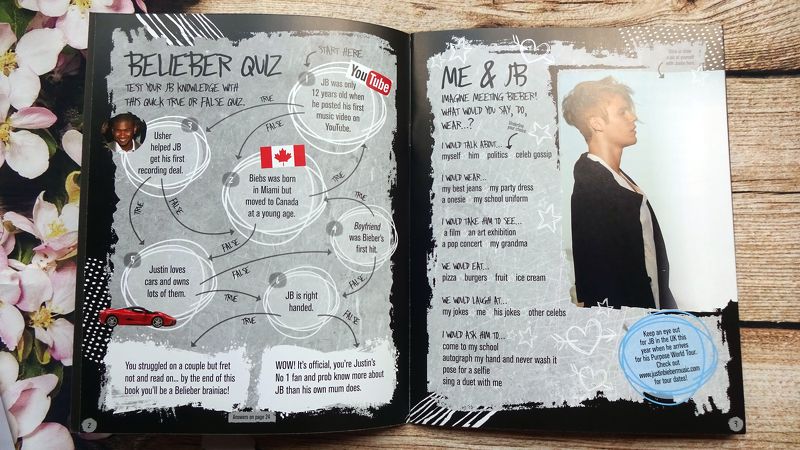 BELIEBER QUIZ
TEST YOUR JB KNOWLEDGE WITH
THIS QUICK TRUE OR FALSE QUIZ.
START HERE
YouTube
1
JB was only
12 years old when
he posted his first
music video on
YouTube.
TRUE
FALSE
3
Usher
helped JB
get his first
recording deal.
TRUE
FALSE
2
Biebs was born
in Miami but
moved to Canada
at a young age.
TRUE
FALSE
4
Boyfriend
was Bieber's
first hit.
TRUE
FALSE
5
Justin loves
cars and owns
lots of them.
TRUE
FALSE
6
JB is right
handed.
TRUE
FALSE
You struggled on a couple but fret
not and read on... by the end of this
book you'll be a Belieber brainiac!
WOW! It's official, you're Justin's
No 1 fan and prob know more about
JB than his own mum does.
Answers on page 24
2
ME & JB
IMAGINE MEETING BIEBER!
WHAT WOULD YOU SAY, DO,
WEAR...?
Underline
your choices
I WOULD TALK ABOUT...
myself him politics celeb gossip
I WOULD WEAR...
my best jeans my party dress
a onesie my school uniform
I WOULD TAKE HIM TO SEE...
a film an art exhibition
a pop concert my grandma
WE WOULD EAT...
pizza burgers fruit ice cream
WE WOULD LAUGH AT...
my jokes me his jokes other celebs
I WOULD ASK HIM TO...
come to my school
autograph my hand and never wash it
pose for a selfie
sing a duet with me
Keep an eye out
for JB in the UK this
year when he arrives
for his Purpose World Tour.
Check out
www.justinbiebermusic.com
for tour dates!
3